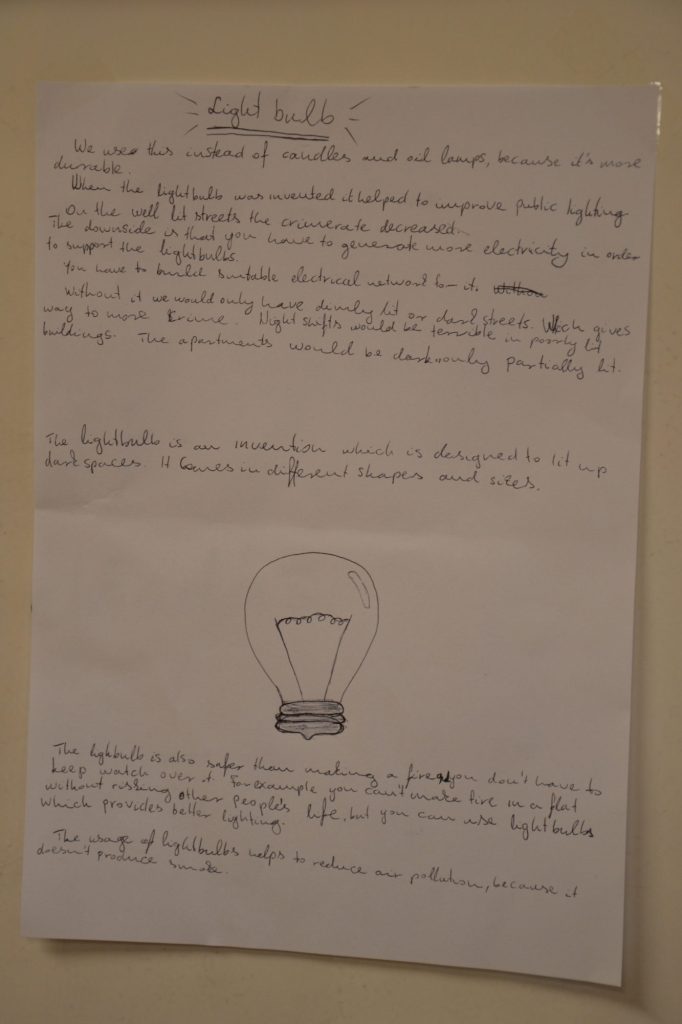 Light bulb
We use this instead of candles and oil lamps, because it's more
durable.
When the lightbulb was invented it helped to improve public lighting
On the well lit streets the crimerate decreased.
The downside is that you have to generate more electricity in order
to support the lightbulbs.
You have to build suitable electrical network for it.
Without it we would only have dimly lit or dark streets. Which gives
way to more crime. Night shifts would be terrible in poorly lit
buildings. The apartments would be dark, only partially lit.
The lightbulb is an invention which is designed to lit up
dark spaces. It comes in different shapes and sizes.
The lighbulb is also safer than making a fire, you don't have to
keep watch over it. For example you can't make fire in a flat
without rissing other people's life, but you can use lightbulbs
which provides better lighting.
The usage of lightbulbs helps to reduce air pollution, because it
doesn't produce smoke.